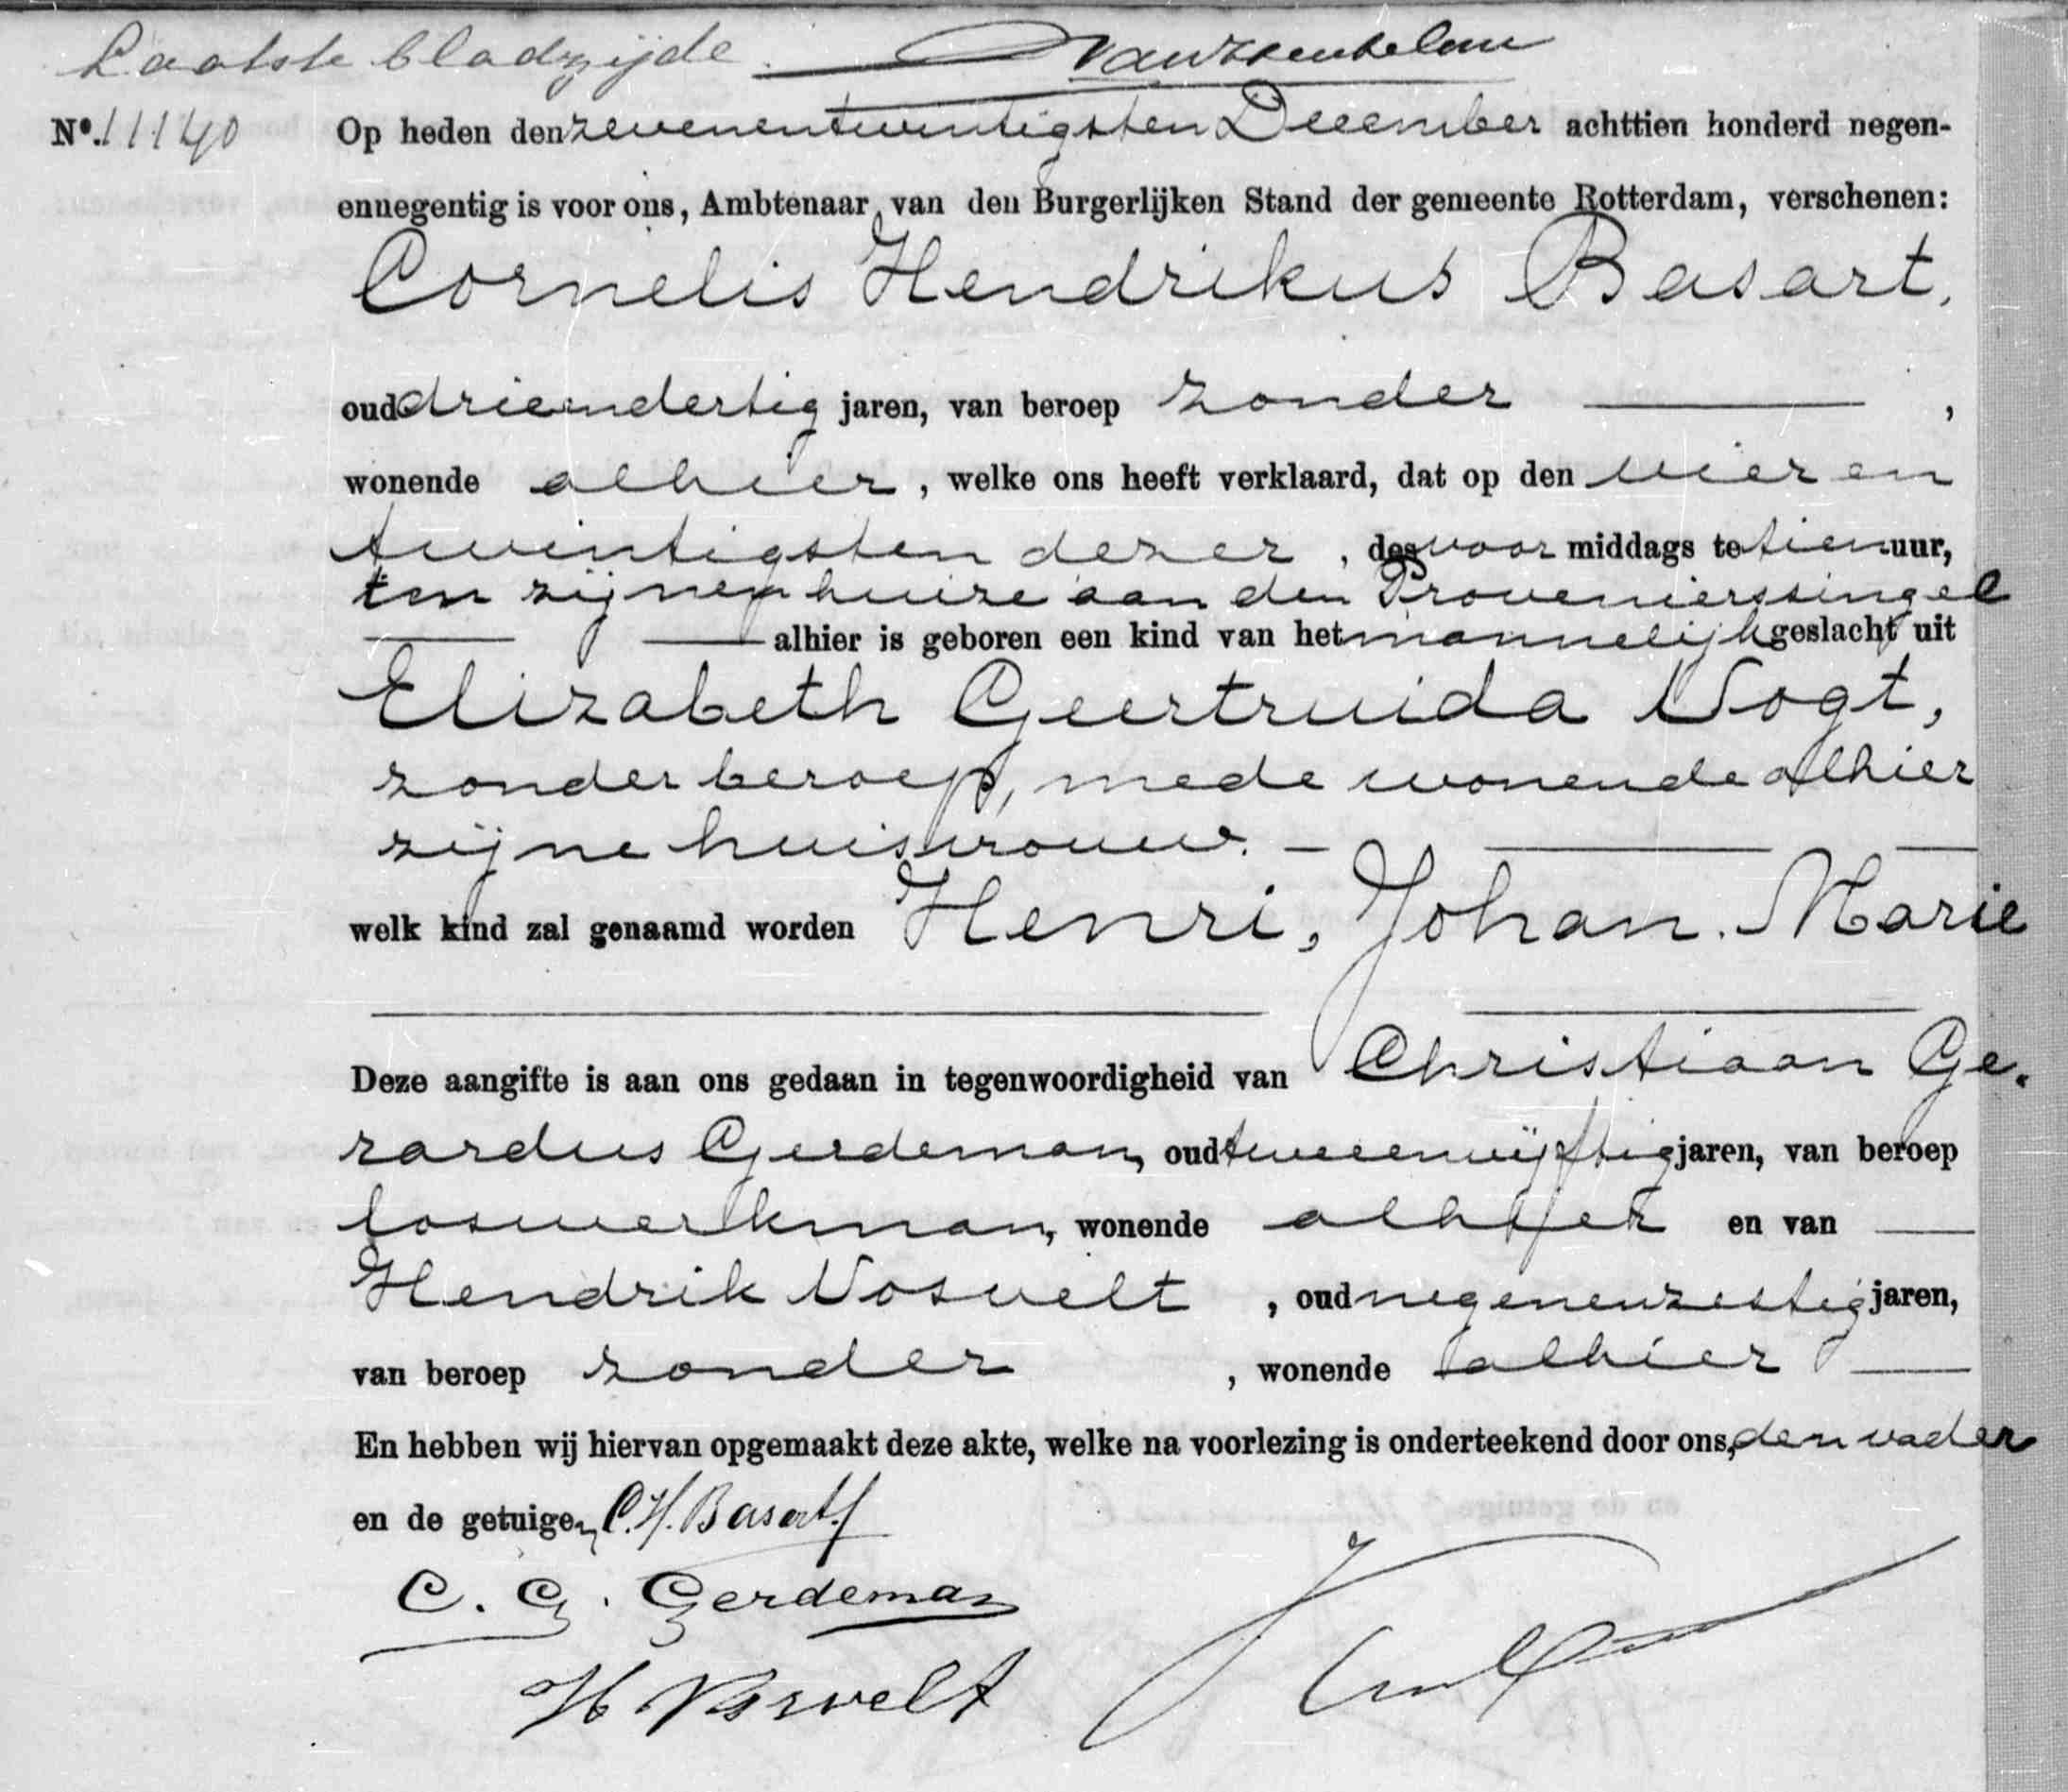 Laatste bladzijde.
No. 11140 Op heden den zevenentwintigsten December achttien honderd negen-
ennegentig is voor ons, Ambtenaar van den Burgerlijken Stand der gemeente Rotterdam, verschenen:
Cornelis Hendrikus Basart,
oud drieendertig jaren, van beroep zonder ,
wonende alhier, welke ons heeft verklaard, dat op den vier en
twintigsten dezer, des voor middags te tien uur,
ten zijnen huize aan den Provenierssingel
alhier is geboren een kind van het mannelijk geslacht uit
Elizabeth Geertruida Vogt,
zonder beroep, mede wonende alhier
zijne huisvrouw.
welk kind zal genaamd worden Henri, Johan. Marie
Deze aangifte is aan ons gedaan in tegenwoordigheid van Christiaan Ge.
rardus Gerdeman, oud tweeenvijftig jaren, van beroep
loswerkman, wonende alhier en van
Hendrik Vosvelt , oud negenenzestig jaren,
van beroep zonder , wonende alhier
En hebben wij hiervan opgemaakt deze akte, welke na voorlezing is onderteekend door ons, den vader
en de getuigen C. H. Basart
C. G. Gerdeman
H Vosvelt